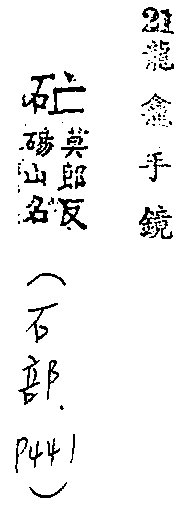 龍龕手鏡
莫郎反
碭山名
(石部.P441)